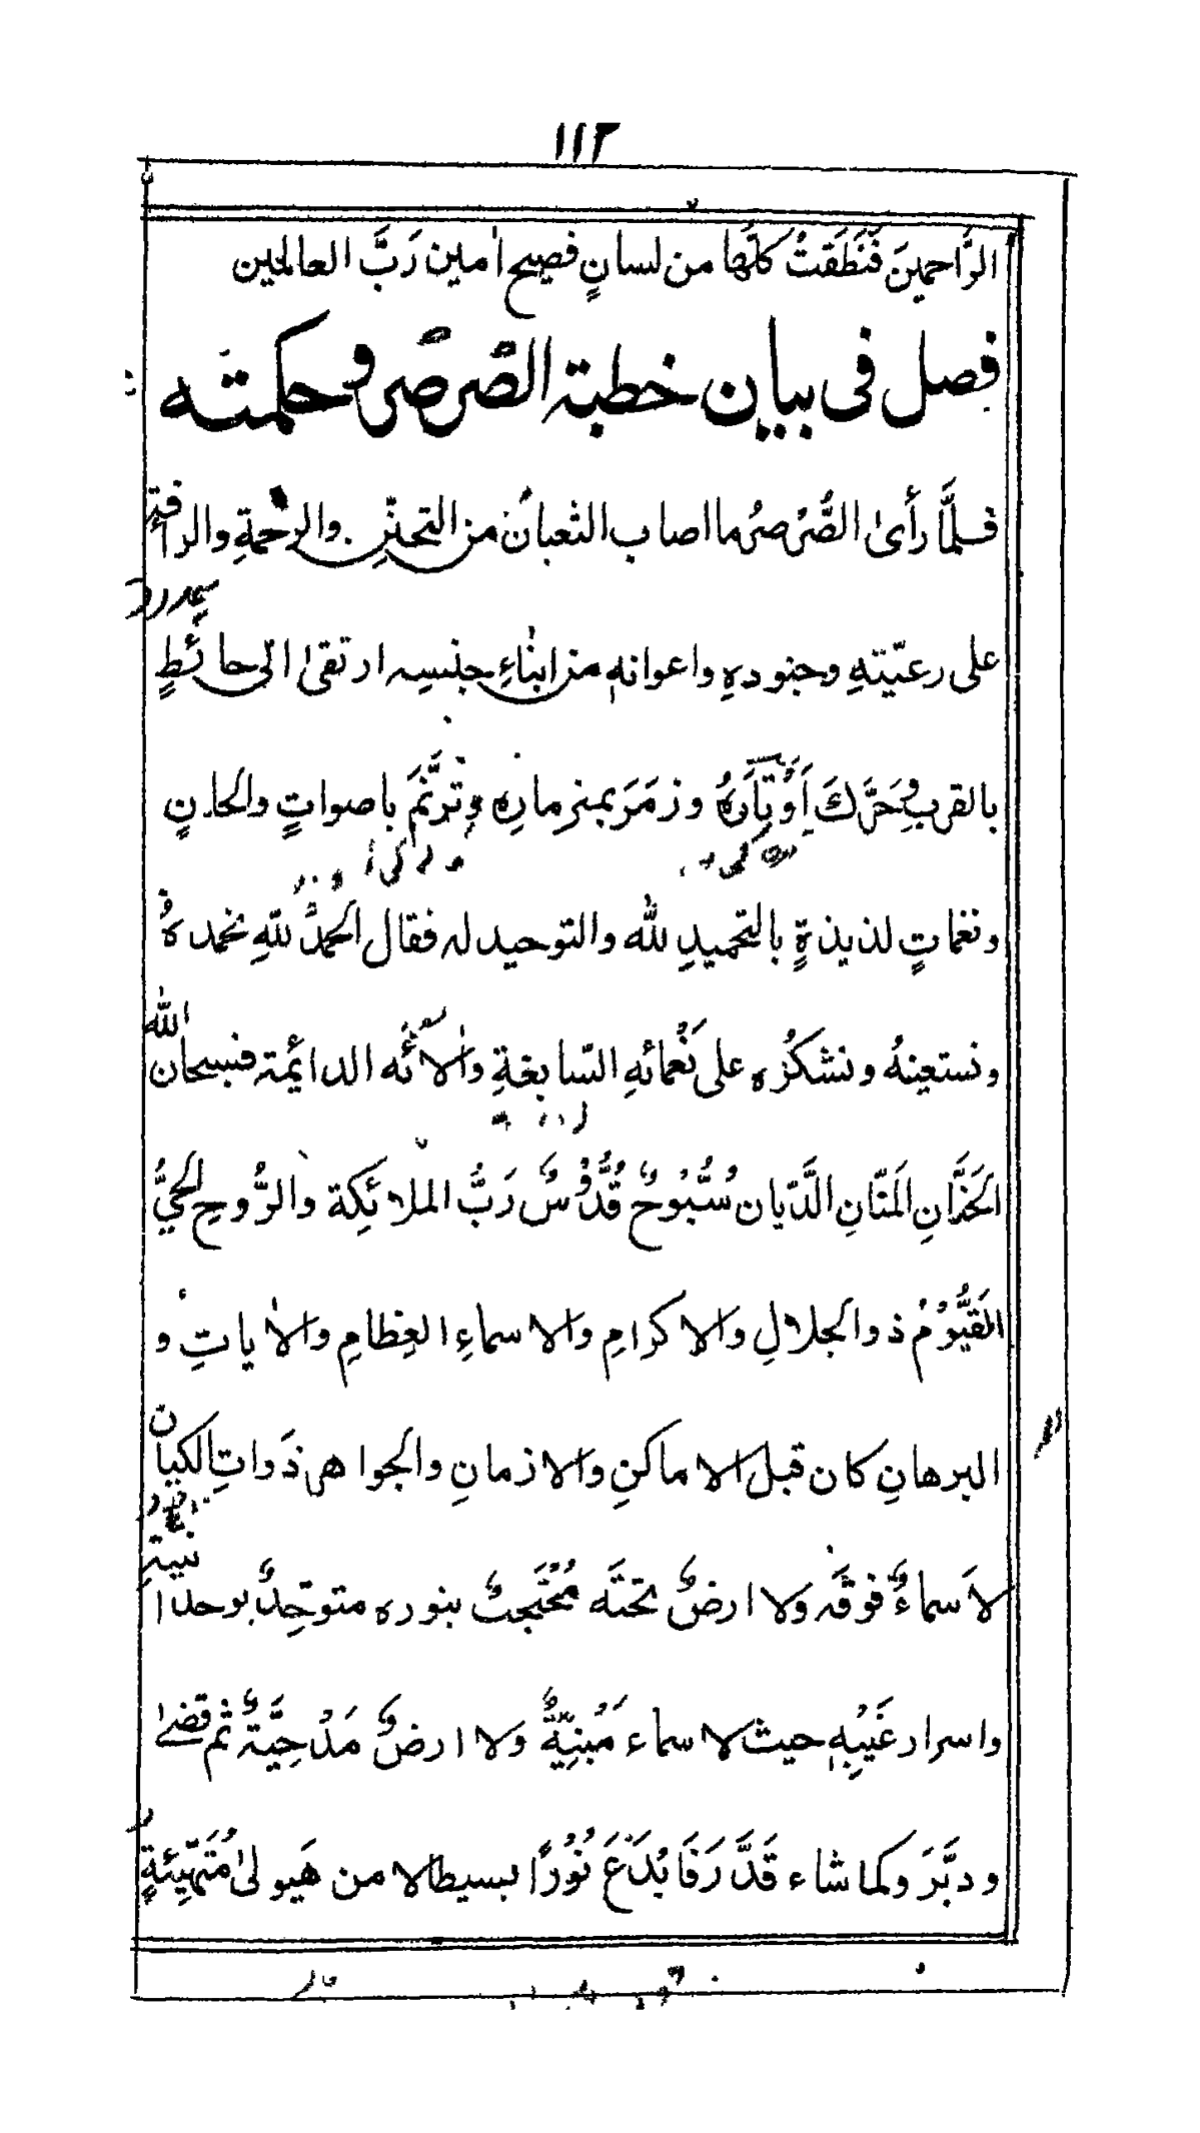 ١١٢
الرَّاحمينَ فَنَطَقتْ كلّها من لسانٍ فصيحٍ اٰمين رَبَّ العالمين
فصل فى بيان خطبة الصّرصر وحكمته
فلمَّا رأى الصُّرصرُ ما اصاب الثعبان من التحنّن والرحمةِ والرافةِ
على رعيّتهِ وجنودهِ واعوانهٖ من ابناءِ جنسِه ارتقىٰ الى حائطٍ
بالقرب وحَرَّكَ اَوْتارَهُ وزَمَرَ بمزمارِهٖ وتَرَنَّمَ باصواتٍ والحانٍ
ونغماتٍ لذيذةٍ بالتحميدِ لله والتوحيد له فقال الحمدُ للهِ نحمدهُ
ونستعينهُ ونشكرُه على نَعْمائهِ السّابغةِ واٰلآئه الدائمة فسبحان الله
الحَنَّانِ المَنّانِ الدَّيّان سُبُّوحٌ قُدُّوسٌ رَبُّ الملائكة والرُّوحِ الحيُّ
القَيُّوْمُ ذو الجلالِ والاكرامِ والاسماءِ العِظامِ والاٰياتِ و
البرهانِ كان قبل الاماكنِ والازمانِ والجواهر ذَواتِ الكيان
لاَسماءٌ فوقَه وَلا ارضٌ تحتَه مُحْتَجبٌ بنوره متوحِّدٌ بوحدانيتهِ
واسرار غَيْبِهٖ حيث لا سماء مَبْنِيَّةٌ ولا ارضٌ مَدْحِيَّةٌ ثم قضىٰ
ودبَّرَ وكما شاء قَدَّرَ فَابْدَعَ نُوْرًا بسيطا لا من هَيولىٰ مُتَهَيِّئةٍ